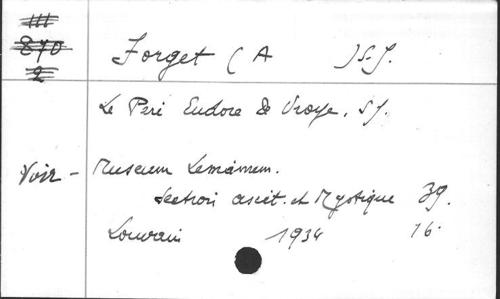 III
870
2
Forget (A )S.J.
Le Père Eudore de Vroye, S.J.
Voir - Museum Lessianum.
Section ascét. et Mystique 39.
Louvain 1934 16.